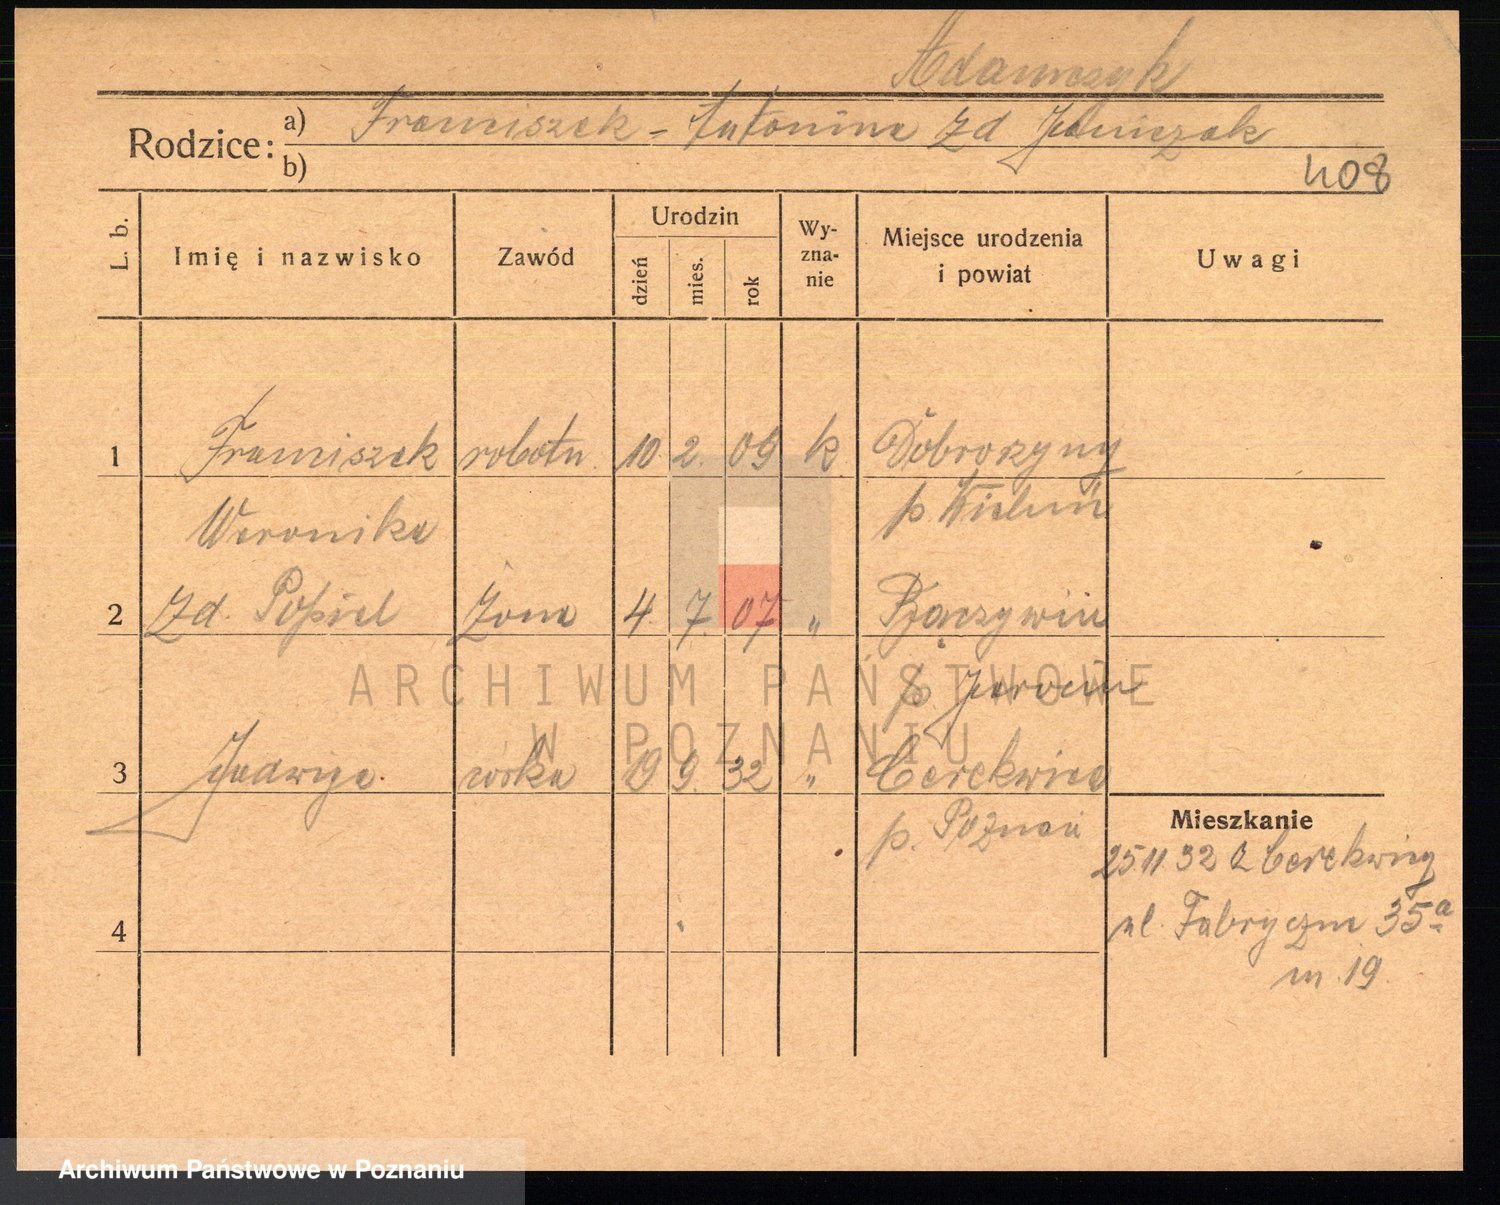 Adamczyk
Rodzice: a) Franciszek - Antonina zd Janiczak
b)
408
L. b. Imię i nazwisko Zawód Urodzin dzień mies. rok Wy-zna-nie Miejsce urodzenia i powiat Uwagi
1 Franciszek robotn. 10 2. 09 k Dobrozyny
Weronika p. Wieluń
2 Zd. Pośpiel Żona 4. 7. 07 "
p. Jarocin
ARCHIWUM PAŃSTWOWE
W POZNANIU
3 Jadwiga córka 19 9. 32 " Cerekwica
Mieszkanie
p. Poznań
25.11.32 Cerekwicy
4 ul. Fabryczna 35a
m. 19.
Archiwum Państwowe w Poznaniu